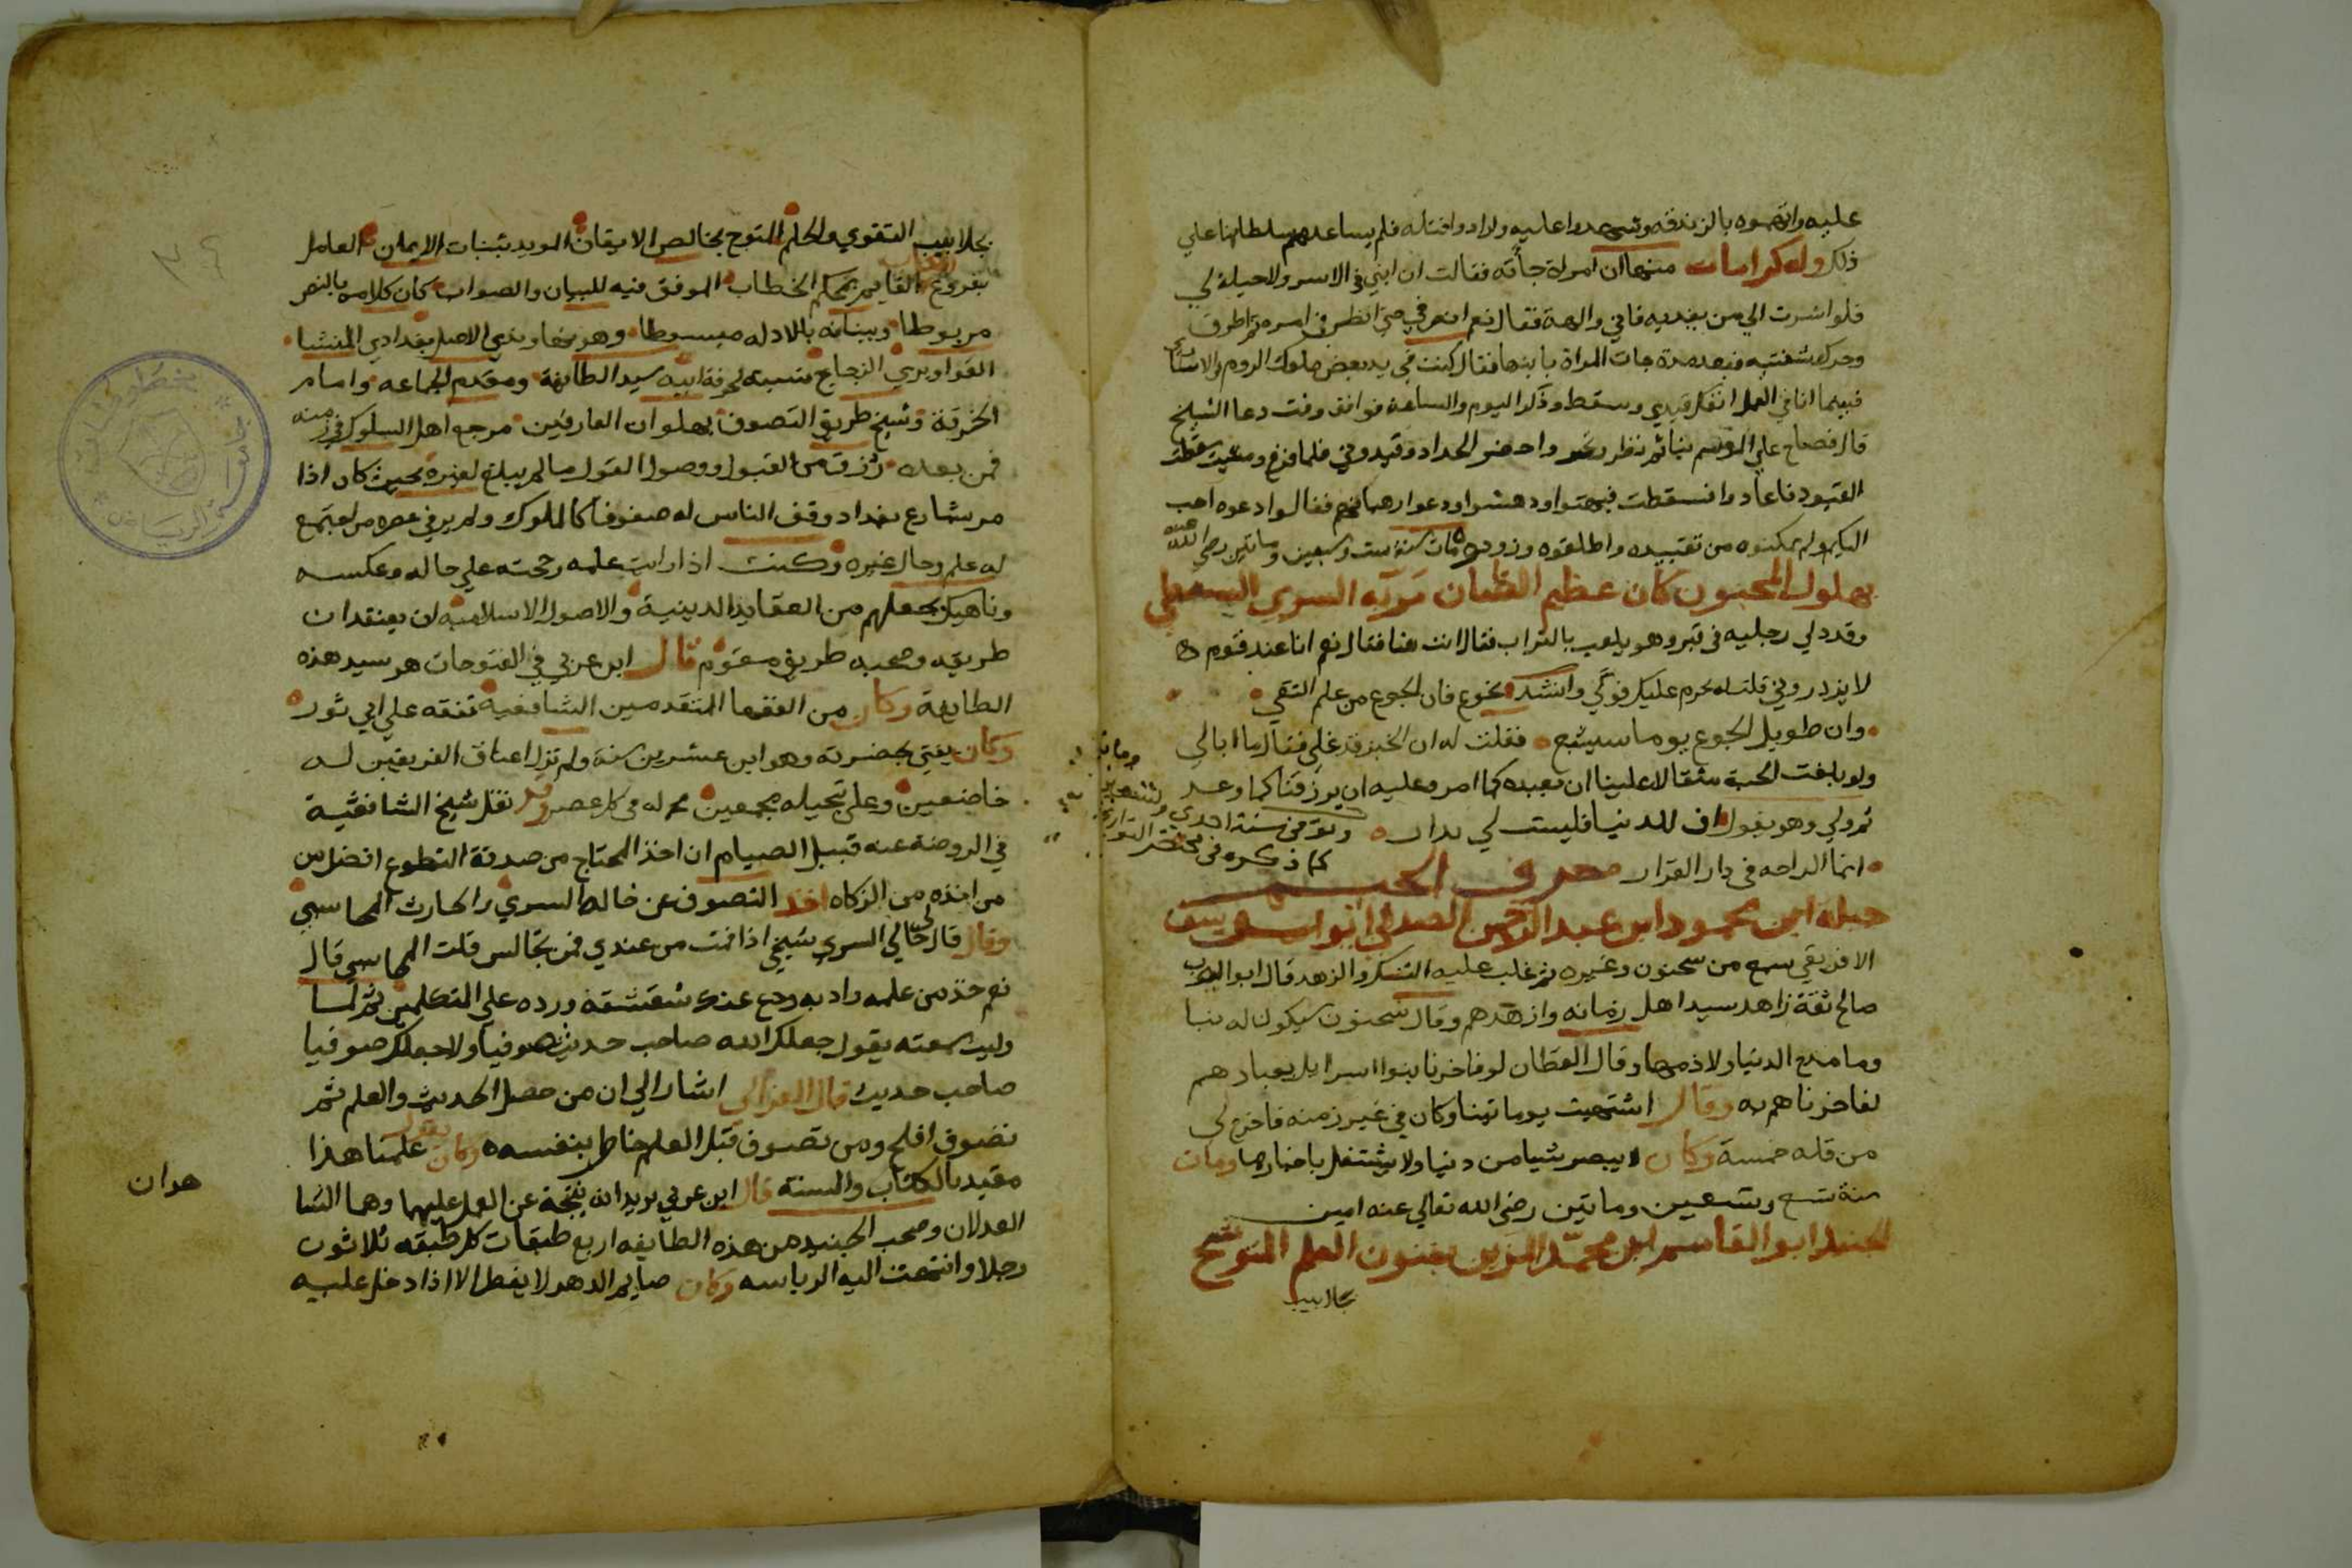 عليه واتهموه بالزندقه وشهدوا عليه وارادوا قتله فلم يساعدهم سلطانها علي
ذلك وله كرامات منها ان امراة جأته فقالت ان ابني في الاسر ولا حيلة لي
فلو اشرت الي من يفديه فاني والهة فقال نعم انصرفي حتي انظر في امره ثم اطرق
وحرك شفتيه فبعد مدة جات المراة بابنها فقال كنت في يد بعض ملوك الروم والاسنا
فبينما انا في العمل انفك قيدي وسقط وذكر اليوم والساعة فوافق وقت دعا الشيخ
قال فصاح علي الموسم بنا ثم نظر وتحير واحضر الحداد وقيدوني فلما فرغ ومشيت سقطت
القيود فاعادوا فسقطت فبهتوا ودهشوا ودعوا رهبانهم فقالوا دعوه احب
اليكم ولم يمكنوه من تقييده واطلقوه وزودوه مات سنة ست وسبعين وماتين رضي الله عنه
بهلول المجنون كان عظيم الشان مر به السري السقطي
وقد دلي رجليه في قبر وهو يلعب بالتراب فقال انت هنا فقال نعم انا عند قوم
لا يذدروني قلت له تحرم عليك فوكي وانشد تجوع فان الجوع من علم التقي
وان طويل الجوع يوما سيشبع فقلت له ان الخبز قد غلي فقال ما ابالي
ولو بلغت الحبة مثقالا علينا ان نعبده كما امر وعليه ان يرزقنا كما وعد
ثم ولي وهو يقول اف للدنيا فليست لي بدار وتوفي سنة احدي وتسعين
كما ذكره في مختصر التواريخ
انما الراحه في دار القرار حرف الجيم
جبله ابن محمود ابن عبد الرحمن الصدفي ابو يوسف
الافريقي سمع من سحنون وغيره ثم غلب عليه التنسك والزهد قال ابو العرب
صالح ثقة زاهد سيد اهل زمانه وازهدهم وقال سحنون سيكون له نبا
وما مدح الدنيا ولا ذمها وقال القطان لو فاخرنا بنوا اسرايل بعبادهم
لفاخرناهم به وقال اشتهيت يوما تينا وكان في غير زمنه فاخرج لي
من قلة خمسة وكان لا يبصر شيا من دنيا ولا يشتغل باخبارها ومات
سنة تسع وتسعين وماتين رضي الله تعالي عنه امين
الجنيد ابو القاسم ابن محمد المزين بفنون العلم المتوشح
بجلابيب
بجلابيب التقوي والحلم المتوج بخالص الايقان المويد بثبات الايمان العامل
بفروع القايم بمحكم الخطاب الموفق فيه للبيان والصواب كان كلامه بالنص
مربوطا وبيانه بالادله مبسوطا وهو نهاوندي الاصل بغدادي المنشا
القواريري الزجاج نسبه لحرفة ابيه سيد الطايفة ومقدم الجماعه وامام
الخرقة وشيخ طريق التصوف بهلوان العارفين مرجع اهل السلوك في زمنه
فمن بعده رزق من القبول ووصول القول ما لم يبلغ لغيره بحيث كان اذا
مر شارع بغداد وقف الناس له صفوفا كالملوك ولم ير في عصره من اجتمع
له علم وحال غيره وكنت اذا رايت علمه رجحته علي حاله وعكسه
وناهيك بجعلهم من العقايد الدينية والاصول الاسلاميه ان يعتقد ان
طريقه وصحبه طريق مقوم قال ابن عربي في الفتوحات هو سيد هذه
الطايفة وكان من الفقها المتقدمين الشافعية تفقه علي ابي ثور
وكان يفتي بحضرته وهو ابن عشرين سنة ولم تزل اعناق الفريقين له
خاضعين وعلي تبجيله مجمعين في كل عصر وقد نقل شيخ الشافعية
في الروضة عنه قبيل الصيام ان اخذ المحتاج من صدقة التطوع افضل من
من اخذه من الزكاه اخذ التصوف عن خاله السري والحارث المحاسبي
وقال قال لي خالي السري شيخي اذا قمت من عندي فمن تجالس قلت المحاسبي قال
نعم خذ من علمه وادبه ودع عنك شقشقة ورده علي المتكلمين ثم لما
وليت سمعته يقول جعلك الله صاحب حديث صوفيا ولا جعلك صوفيا
صاحب حديث قال الغزالي اشار الي ان من حصل الحديث والعلم ثم
تصوف افلح ومن تصوف قبل العلم خاطر بنفسه وكان يقول علمنا هذا
مقيد بالكتاب والسنة قال ابن عربي يريد انه نتيجة عن العمل عليهما وهما الشا
هدان
العدلان وصحب الجنيد من هذه الطايفه اربع طبقات كل طبقه ثلاثون
رجلا وانتهت اليه الرياسه وكان صايم الدهر لا يفطر الا اذا دخل عليه